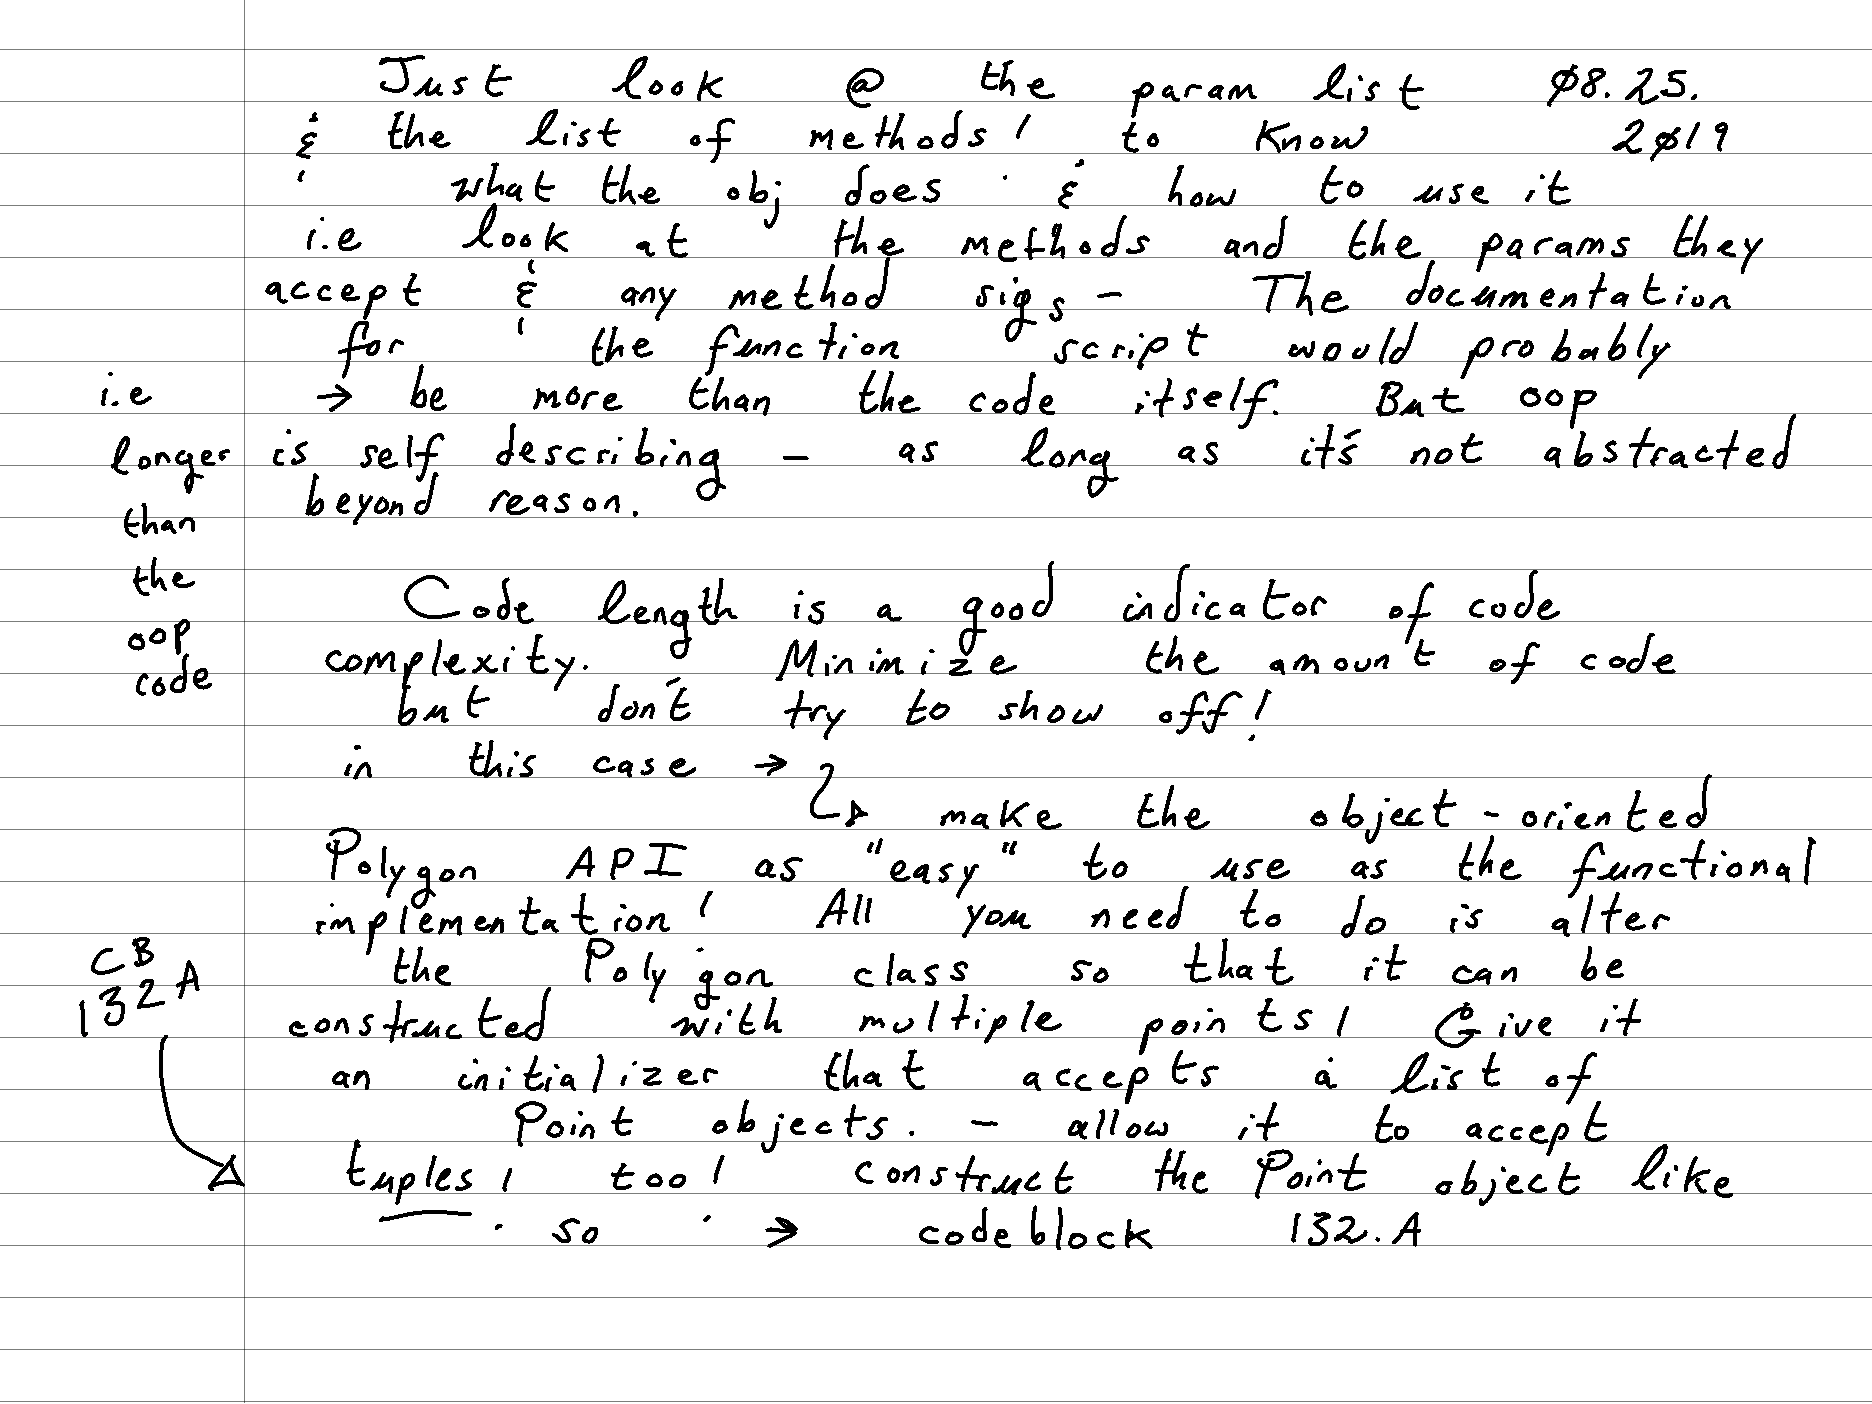 Just look @ the param list Ø8.25.
& the list of methods! to know 2Ø19
what the obj does & how to use it
i.e look at the methods and the params they
accept & any method sigs - The documentation
for the function script would probably
i.e → be more than the code itself. But oop
longer is self describing - as long as it's not abstracted
than beyond reason.
the
oop
code
Code length is a good indicator of code
complexity. Minimize the amount of code
but don't try to show off!
in this case →
make the object-oriented
Polygon API as "easy" to use as the functional
implementation! All you need to do is alter
CB the Polygon class so that it can be
132A constructed with multiple points! Give it
an initializer that accepts a list of
Point objects. - allow it to accept
tuples! too! construct the Point object like
so → codeblock 132.A